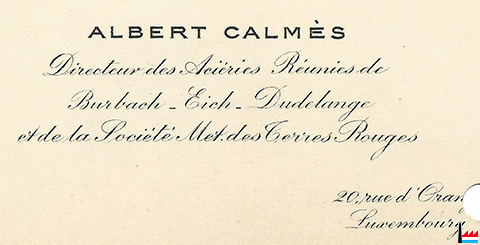 ALBERT CALMÈS
Directeur des Aciéries Réunies de
Burbach - Eich - Dudelange
et de la Société Met. des Terres Rouges
20, rue d'Oran
Luxembourg